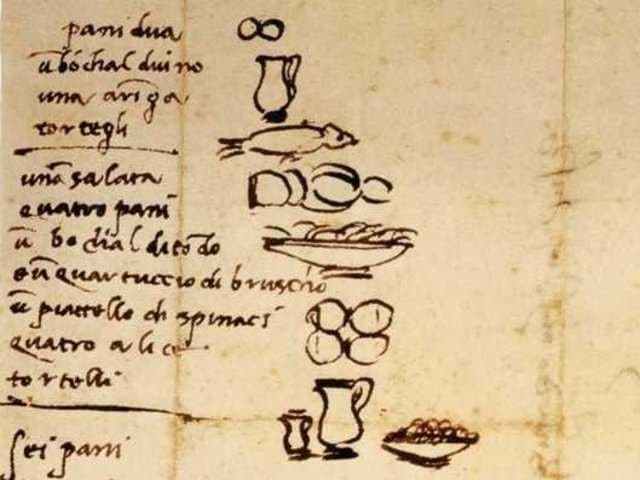 pani dua
ū bóchal duino
una aringa
tortegli
una salata
quatro pani
ū bochal ditōdo
eū quartuccio di bruscho
ū piattello di spinaci
quatro alice
tortelli
sei pani